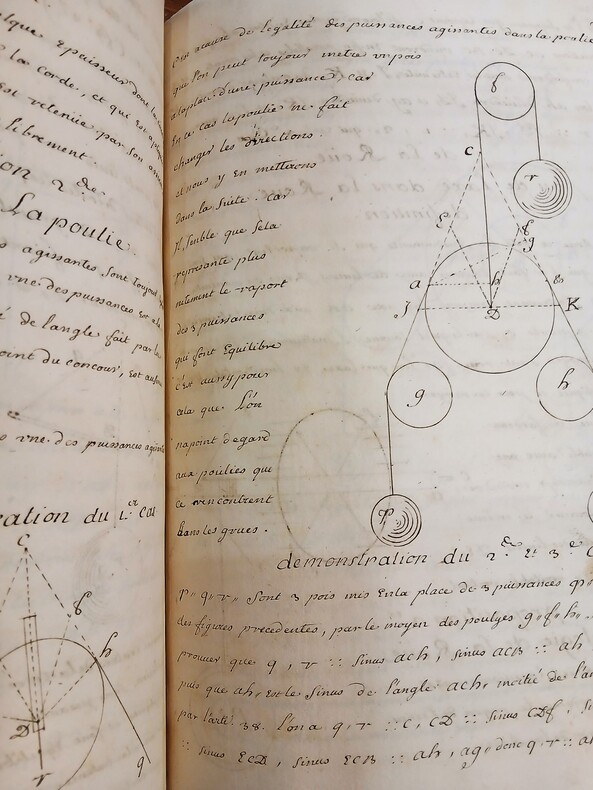 lque Epaisseur dont la
la corde, et qui est
Est retenüe par son
librement.
ion 2.de
La poulie.
agissantes sont toujou
vne des puissances Est a la
de l'angle fait par la
oint du concour, Est
vne des puissances agissan
ration du 1.er Cas
C
f
h
D
r
q
C'est acause de legalité des puissances agissantes dans la poulie
que l'on peut toujour metre un pois
alaplace d'une puissance, car
En ce cas la poulie ne fait
changer les directions.
et nous y En metterons
dans la suite. Car
Il semble que sela
represente plus
netement le raport
des 3 puissances
qui sont Equilibre
c'est aussy pour
cela que l'on
napoint d'egard
aux poulies que
ce rencontrent
dans les grues.
f
r
C
E
f
g
a
h
B
J
D
K
g
h
P
demonstration du 2.de Et 3.e C
p, q, r, Sont 3 pois mis En la place de 3 puissances
des figures precedentes, par le moyen des poulyes g, f, h,
prouver que q, r :: sinus ach, sinus acB :: ah
puis que ah, est le sinus de l'angle ach,
par l'arte. 38. l'on a q, r :: C, CD :: sinus CDf,
:: sinus ECD, sinus ECB :: ah, ag, donc q, r ::